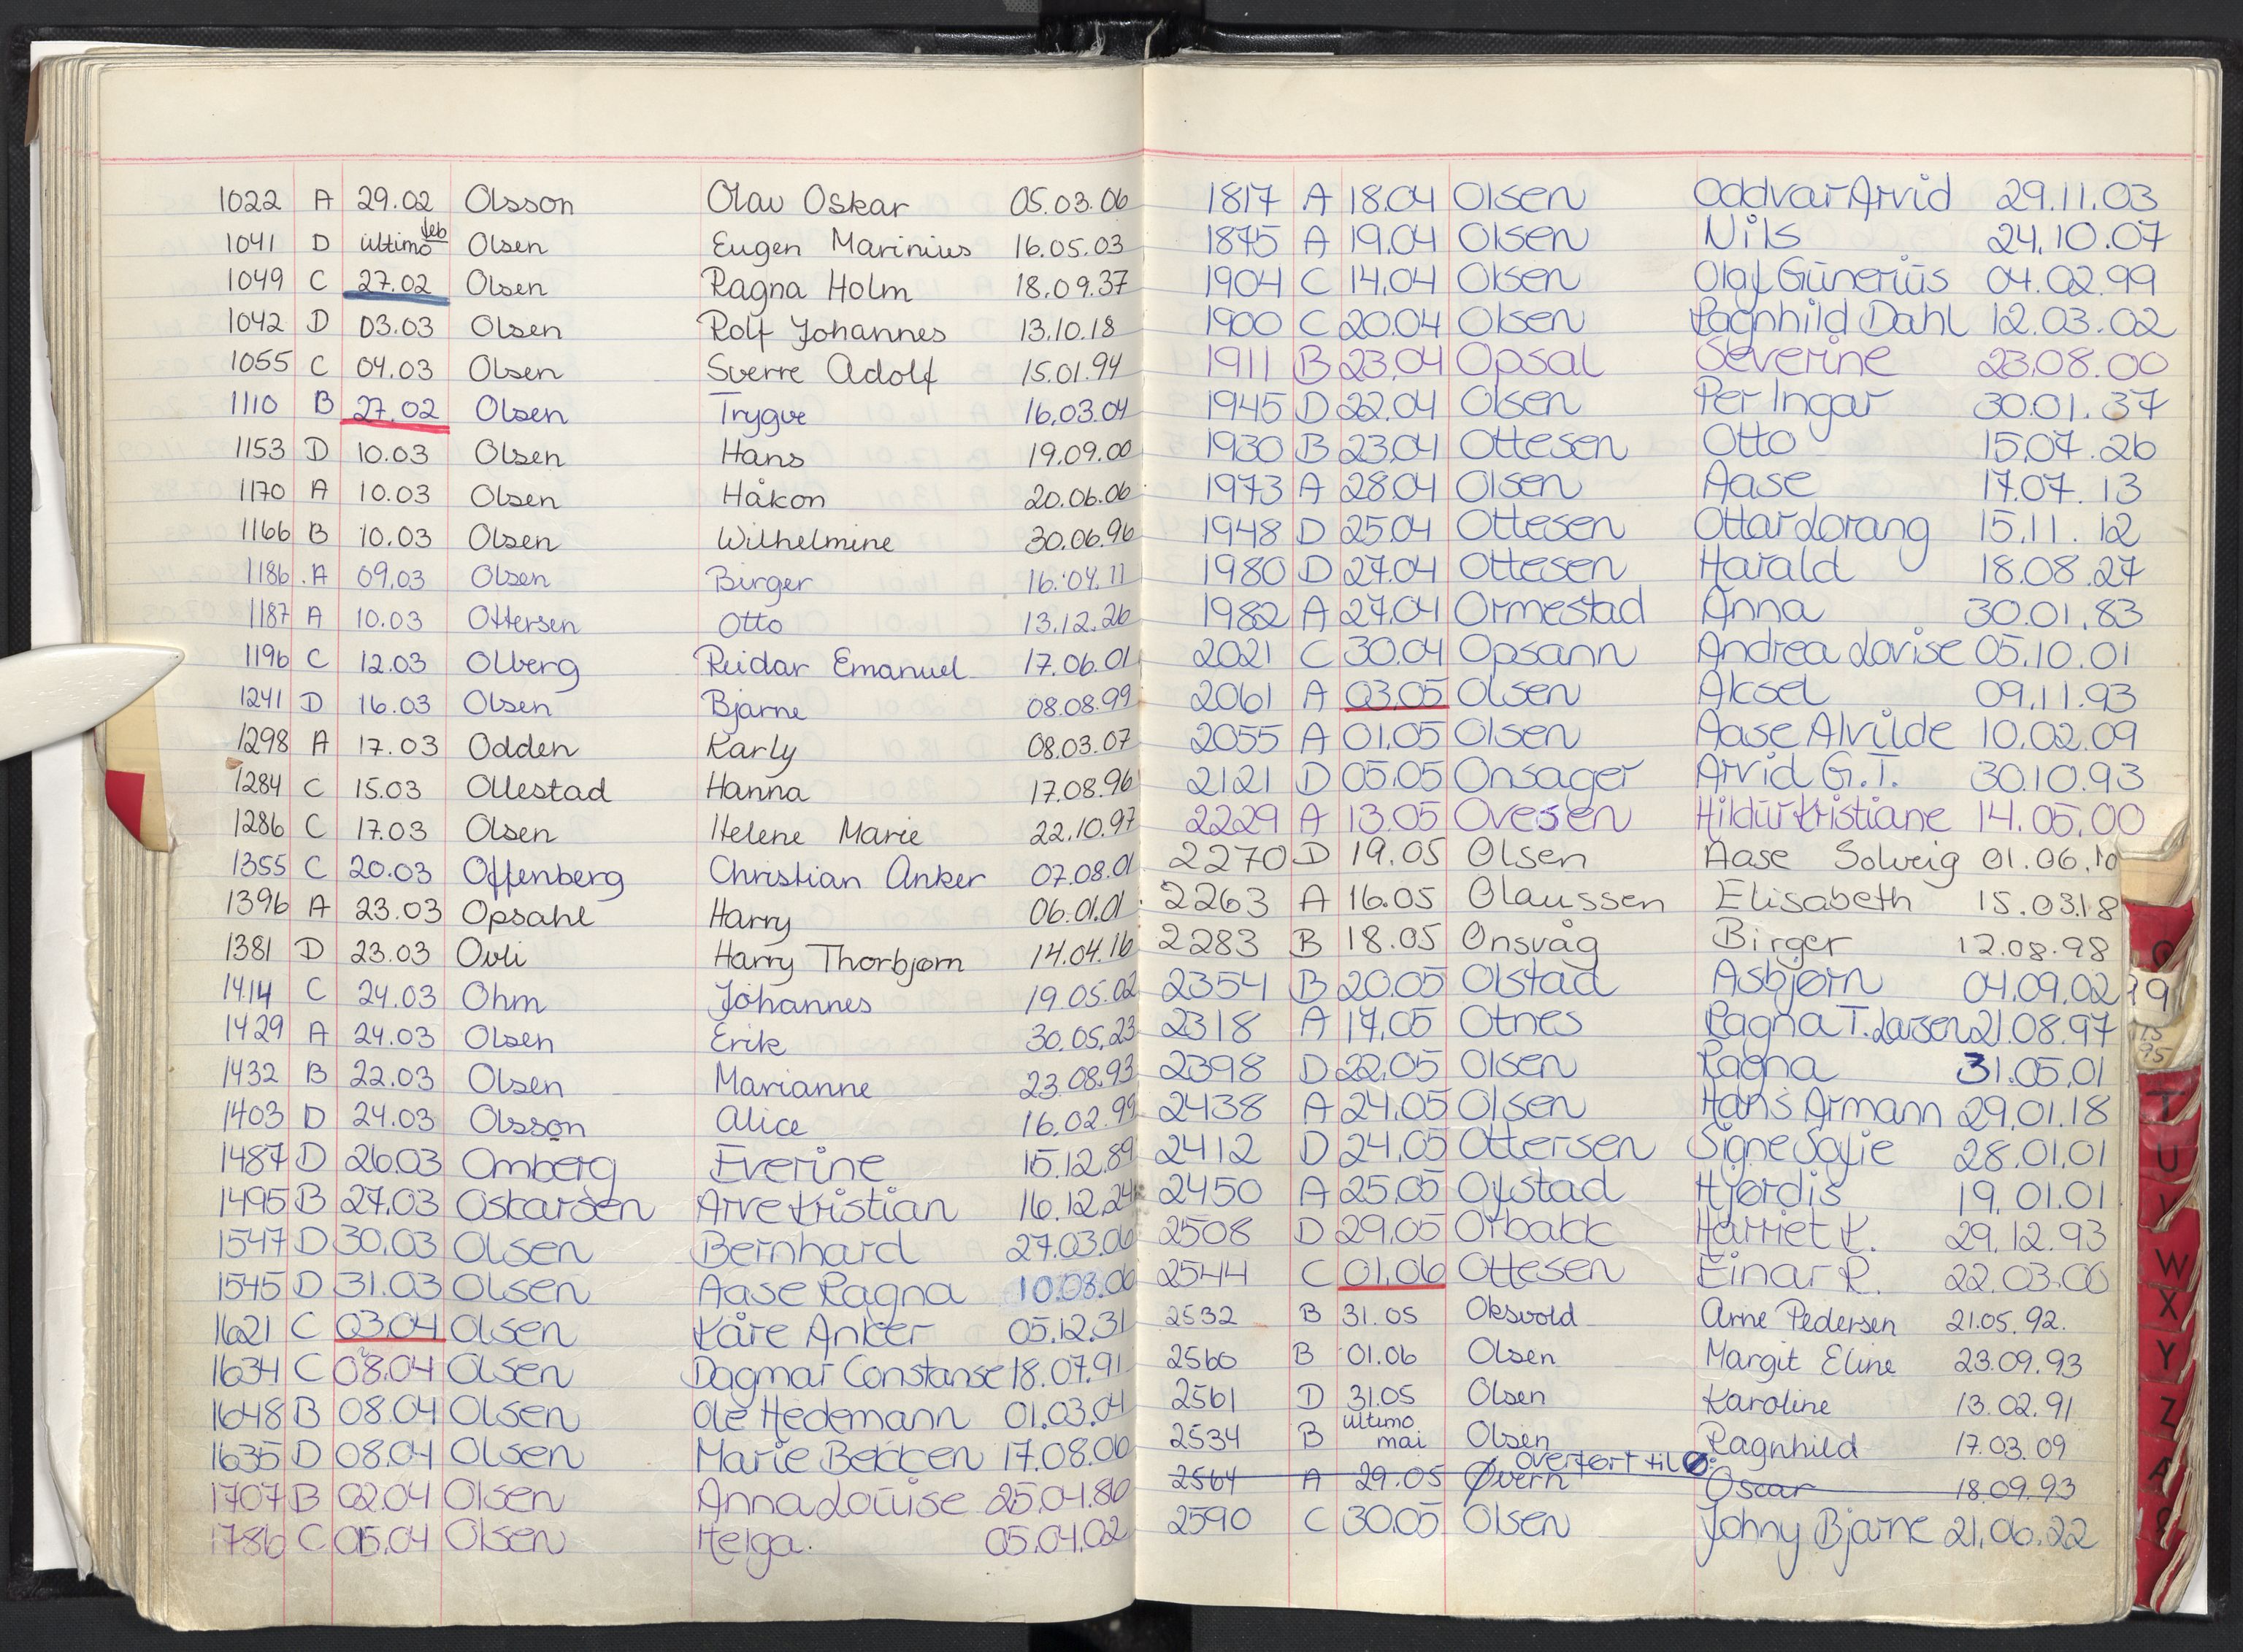 1022 A 29.02 Olsson Olav Oskar 05.03.06
1041 D ultimo feb Olsen Eugen Marinius 16.05.03
1049 C 27.02 Olsen Ragna Holm 18.09.37
1042 D 03.03 Olsen Rolf Johannes 13.10.18
1055 C 04.03 Olsen Sverre Adolf 15.01.94
1110 B 27.02 Olsen Trygve 16.03.04
1153 D 10.03 Olsen Hans 19.09.00
1170 A 10.03 Olsen Håkon 20.06.06
1166 B 10.03 Olsen Wilhelmine 30.06.96
1186 A 09.03 Olsen Birger 16.04.11
1187 A 10.03 Ottersen Otto 13.12.26
1196 C 12.03 Olberg Reidar Emanuel 17.06.01
1241 D 16.03 Olsen Bjarne 08.08.99
1298 A 17.03 Odden Karly 08.03.07
1284 C 15.03 Ollestad Hanna 17.08.96
1286 C 17.03 Olsen Helene Marie 22.10.97
1355 C 20.03 Offenberg Christian Anker 07.08.01
1396 A 23.03 Opsahl Harry 06.01.01
1381 D 23.03 Ovli Harry Thorbjørn 14.04.16
1414 C 24.03 Ohm Johannes 19.05.02
1429 A 24.03 Olsen Erik 30.05.23
1432 B 22.03 Olsen Marianne 23.08.93
1403 D 24.03 Olsson Alice 16.02.99
1487 D 26.03 Omberg Everine 15.12.89
1495 B 27.03 Oskarsen Arve Kristian 16.12.24
1547 D 30.03 Olsen Bernhard 27.03.06
1545 D 31.03 Olsen Aase Ragna 10.08.06
1621 C 03.04 Olsen Kåre Anker 05.12.31
1634 C 08.04 Olsen Dagmar Constanse 18.07.91
1648 B 08.04 Olsen Ole Hedemann 01.03.04
1635 D 08.04 Olsen Marie Bekken 17.08.06
1707 B 02.04 Olsen Anna Louise 25.04.86
1786 C 05.04 Olsen Helga. 05.04.02
1817 A 18.04 Olsen Oddvar Arvid 29.11.03
1875 A 19.04 Olsen Nils 24.10.07
1904 C 14.04 Olsen Olaf Gunerius 04.02.99
1900 C 20.04 Olsen Ragnhild Dahl 12.03.02
1911 B 23.04 Opsal Severine 23.08.00
1945 D 22.04 Olsen Per Ingar 30.01.37
1930 B 23.04 Ottesen Otto 15.07.26
1973 A 28.04 Olsen Aase 17.07.13
1948 D 25.04 Ottesen Ottar Lorang 15.11.12
1980 D 27.04 Ottesen Harald 18.08.27
1982 A 27.04 Ormestad Anna 30.01.83
2021 C 30.04 Opsann Andrea Lovise 05.10.01
2061 A 03.05 Olsen Aksel 09.11.93
2055 A 01.05 Olsen Aase Alvilde 10.02.09
2121 D 05.05 Onsager Arvid G.T. 30.10.93
2229 A 13.05 Ovesen Hildur Kristiane 14.05.00
2270 D 19.05 Olsen Aase Solveig 01.06.10
2263 A 16.05 Olaussen Elisabeth 15.03.18
2283 B 18.05 Onsvåg Birger 12.08.98
2354 B 20.05 Olstad Asbjørn 04.09.02
2318 A 17.05 Otnes Ragna T. Larsen 21.08.97
2398 D 22.05 Olsen Ragna 31.05.01
2438 A 24.05 Olsen Hans Armann 29.01.18
2412 D 24.05 Ottersen Signe Sofie 28.01.01
2450 A 25.05 Ofstad Hjørdis 19.01.01
2508 D 29.05 Orbakk Harriet K. 29.12.93
2544 C 01.06 Ottesen Einar R. 22.03.00
2532 B 31.05 Oksvold Arne Pedersen 21.05.92.
2560 B 01.06 Olsen Margit Eline 23.09.93
2561 D 31.05 Olsen Karoline 13.02.91
2534 B ultimo mai Olsen Ragnhild 17.03.09
overført til Ø.
2564 A 29.05 Øvern Oscar 18.09.93
2590 C 30.05 Olsen Johny Bjarne 21.06.22
T
U
V
W
X
Y
Z